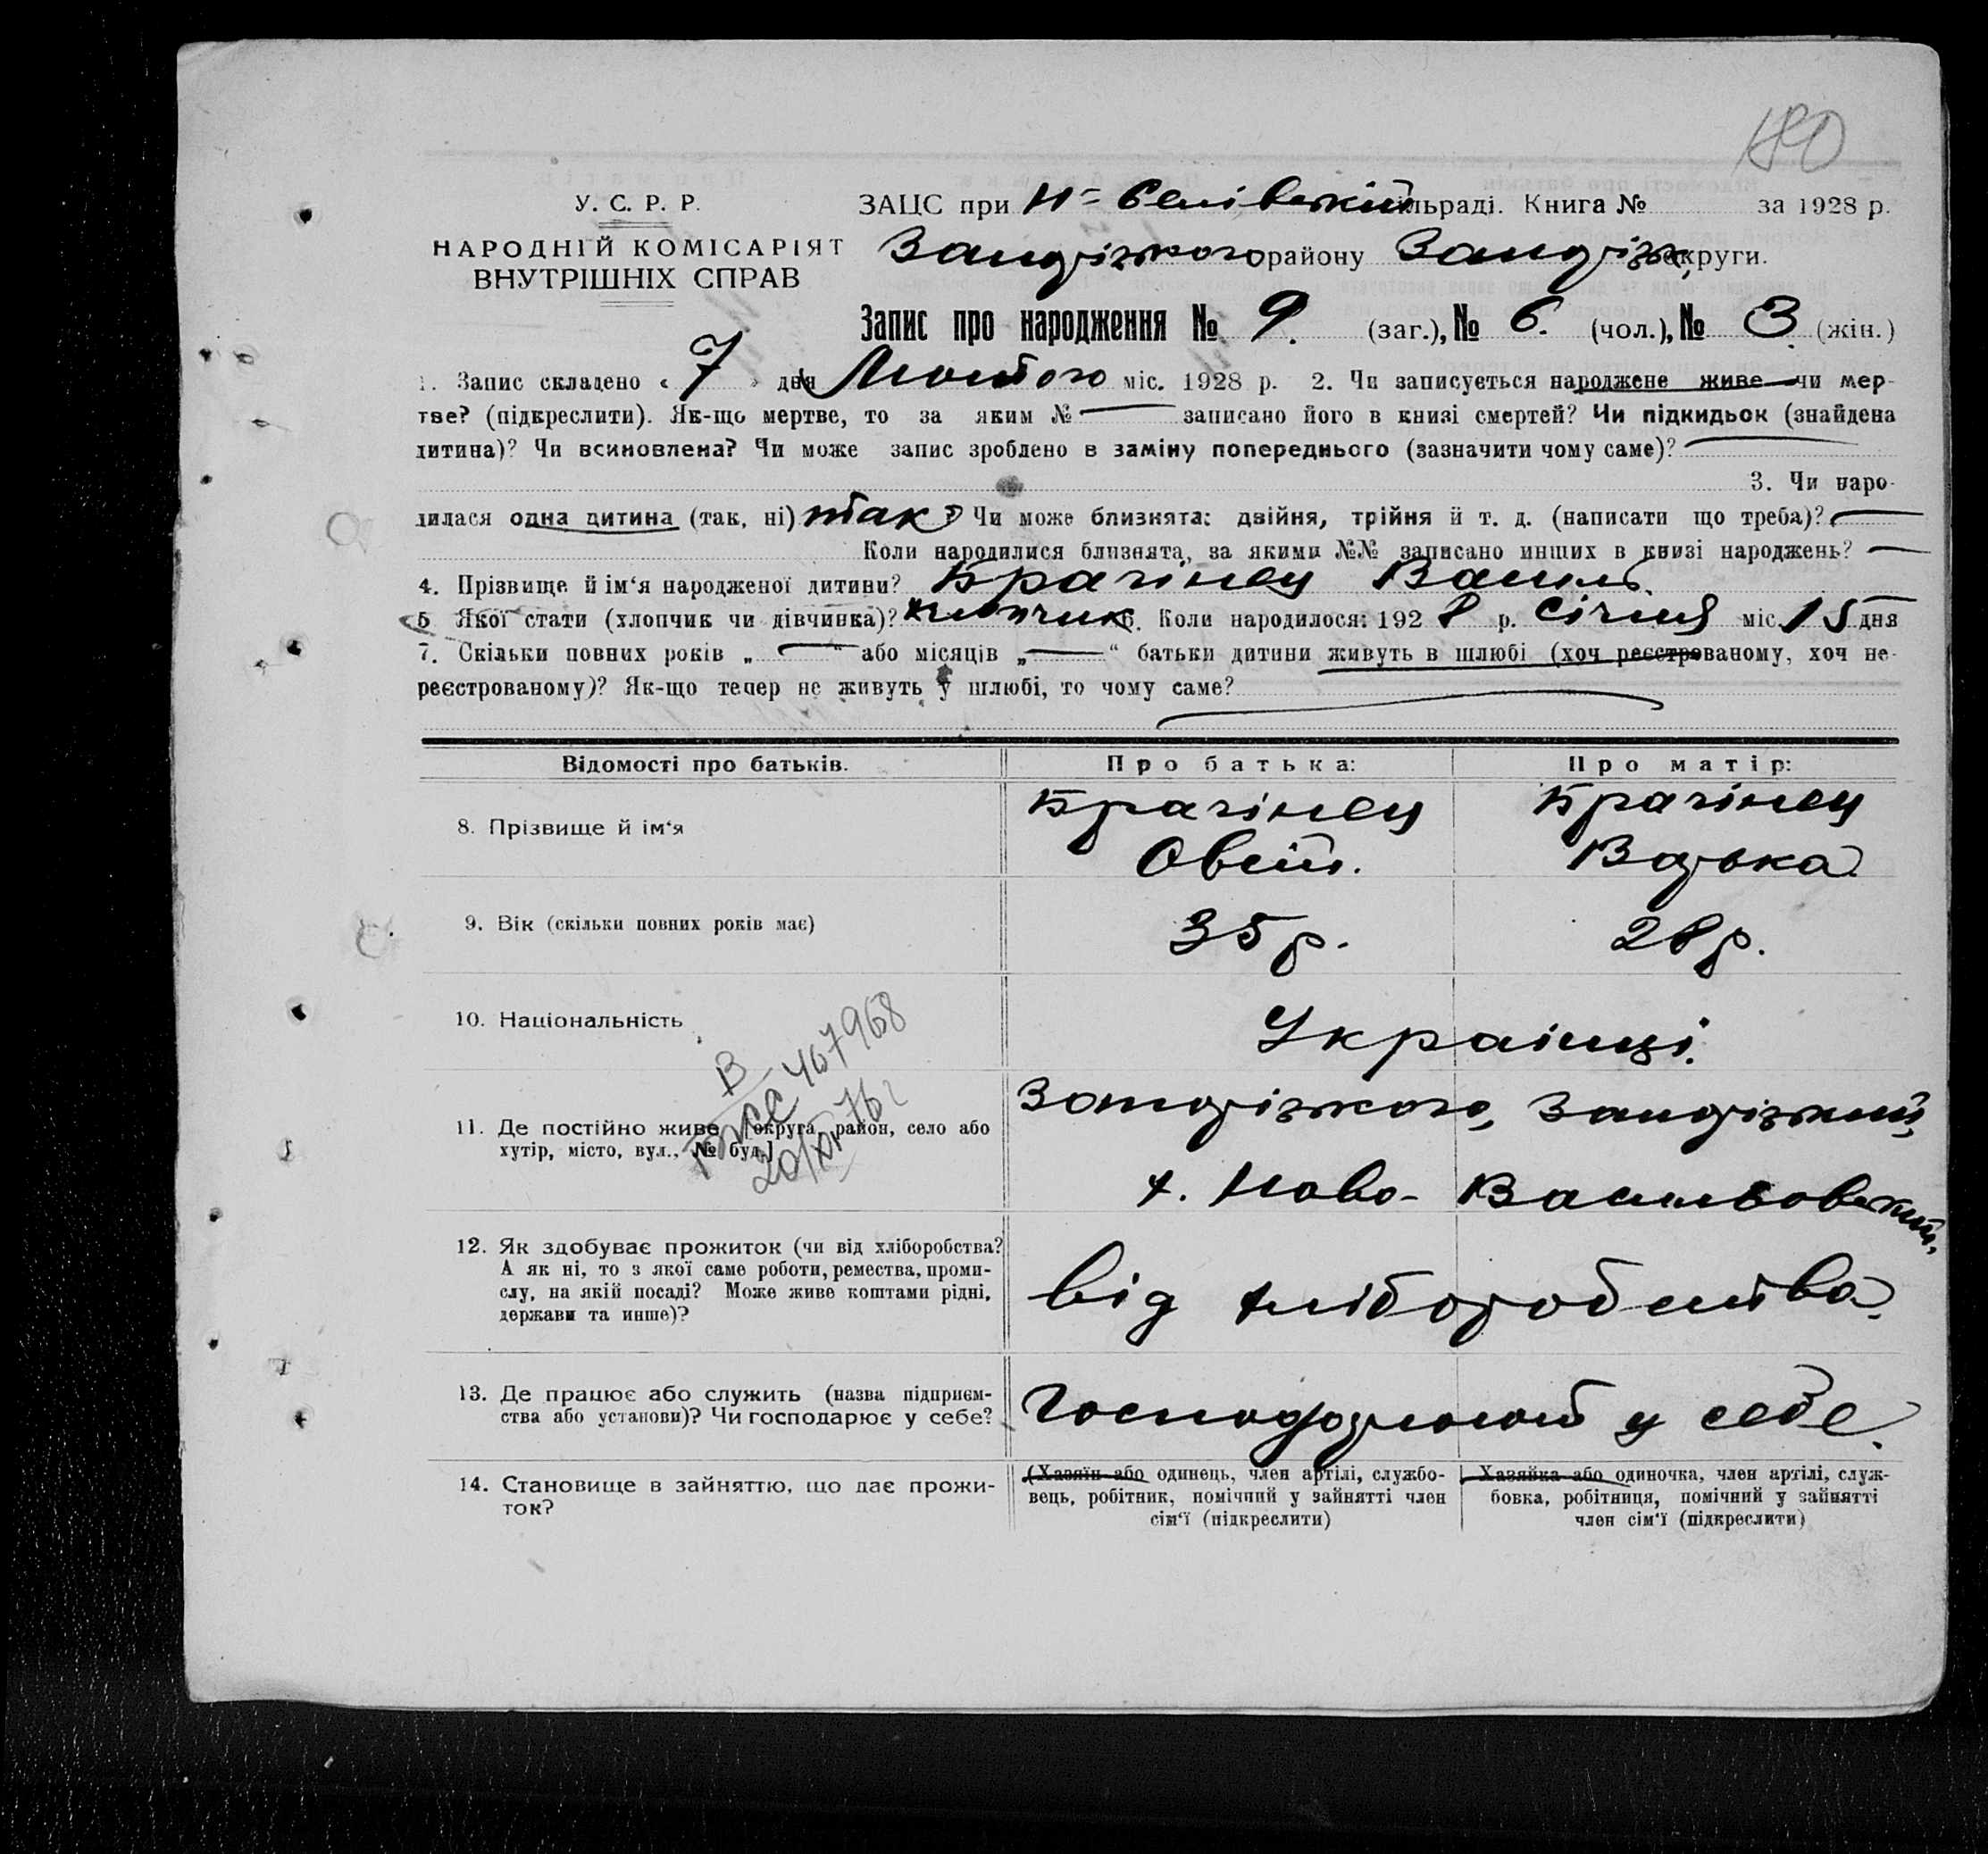 180
У. С. Р. Р.
НАРОДНІЙ КОМІСАРІЯТ
ВНУТРІШНІХ СПРАВ
ЗАЦС при Н-Селівський сільраді. Книга № за 1928 р.
Запорізького району Запорізьк округи.
Запис про народження № 9. (заг.), № 6. (чол.), № 3 (жін.)
1. Запис складено « 7 » дня Лютого міс. 1928 р. 2. Чи записується народжене живе чи мер-
тве? (підкреслити). Як-що мертве, то за яким № записано його в книзі смертей? Чи підкидьок (знайдена
дитина)? Чи всиновлена? Чи може запис зроблено в заміну попереднього (зазначити чому саме)?
3. Чи наро-
дилася одна дитина (так, ні) так ? Чи може близнята: двійня, трійня й т. д. (написати що треба)?
Коли народилися близнята, за якими №№ записано инших в книзі народжень?
4. Прізвище й ім‘я народженої дитини? Брагінец Василь.
5 Якої стати (хлопчик чи дівчинка)? хлопчик 6. Коли народилося: 192 8 р. січня міс. 15 дня
7. Скільки повних років „ “ або місяців „ “ батьки дитини живуть в шлюбі (хоч реєстрованому, хоч не-
реєстрованому)? Як-що тепер не живуть у шлюбі, то чому саме?
Відомості про батьків. Про батька: Про матір:
8. Прізвище й ім‘я Брагінец Брагінец
Овсій. Варька
9. Вік (скільки повних років має) 35 р. 28 р.
10. Національність Українці.
В
407968
20/XI 76 г
11. Де постійно живе [округа, район, село або
хутір, місто, вул., № буд.]
Запорізького, Запорізький,
х. Ново- Васильовський,
12. Як здобуває прожиток (чи від хліборобства?
А як ні, то з якої саме роботи, ремества, проми-
слу, на якій посаді? Може живе коштами рідні,
держави та инше)?
від хліборобства.
13. Де працює або служить (назва підприєм-
ства або установи)? Чи господарює у себе?
Господарюют у себе.
14. Становище в зайняттю, що дає прожи-
ток?
(Хазяїн або одинець, член артілі, службо-
вець, робітник, помічний у зайнятті член
сім‘ї (підкреслити)
Хазяйка або одиночка, член артілі, служ-
бовка, робітниця, помічний у зайнятті
член сім‘ї (підкреслити)